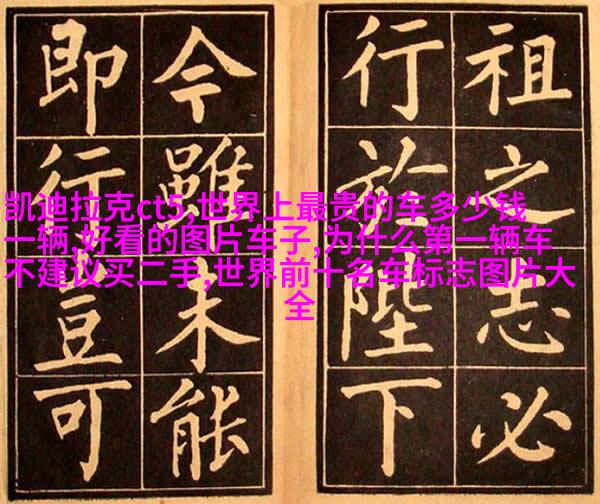 祖之志必
行於陛下
今雖未能
即行豈可
凯迪拉克ct5,世界上最贵的车多少钱
一辆,好看的图片车子,为什么第一辆车
不建议买二手,世界前十名车标志图片大
全